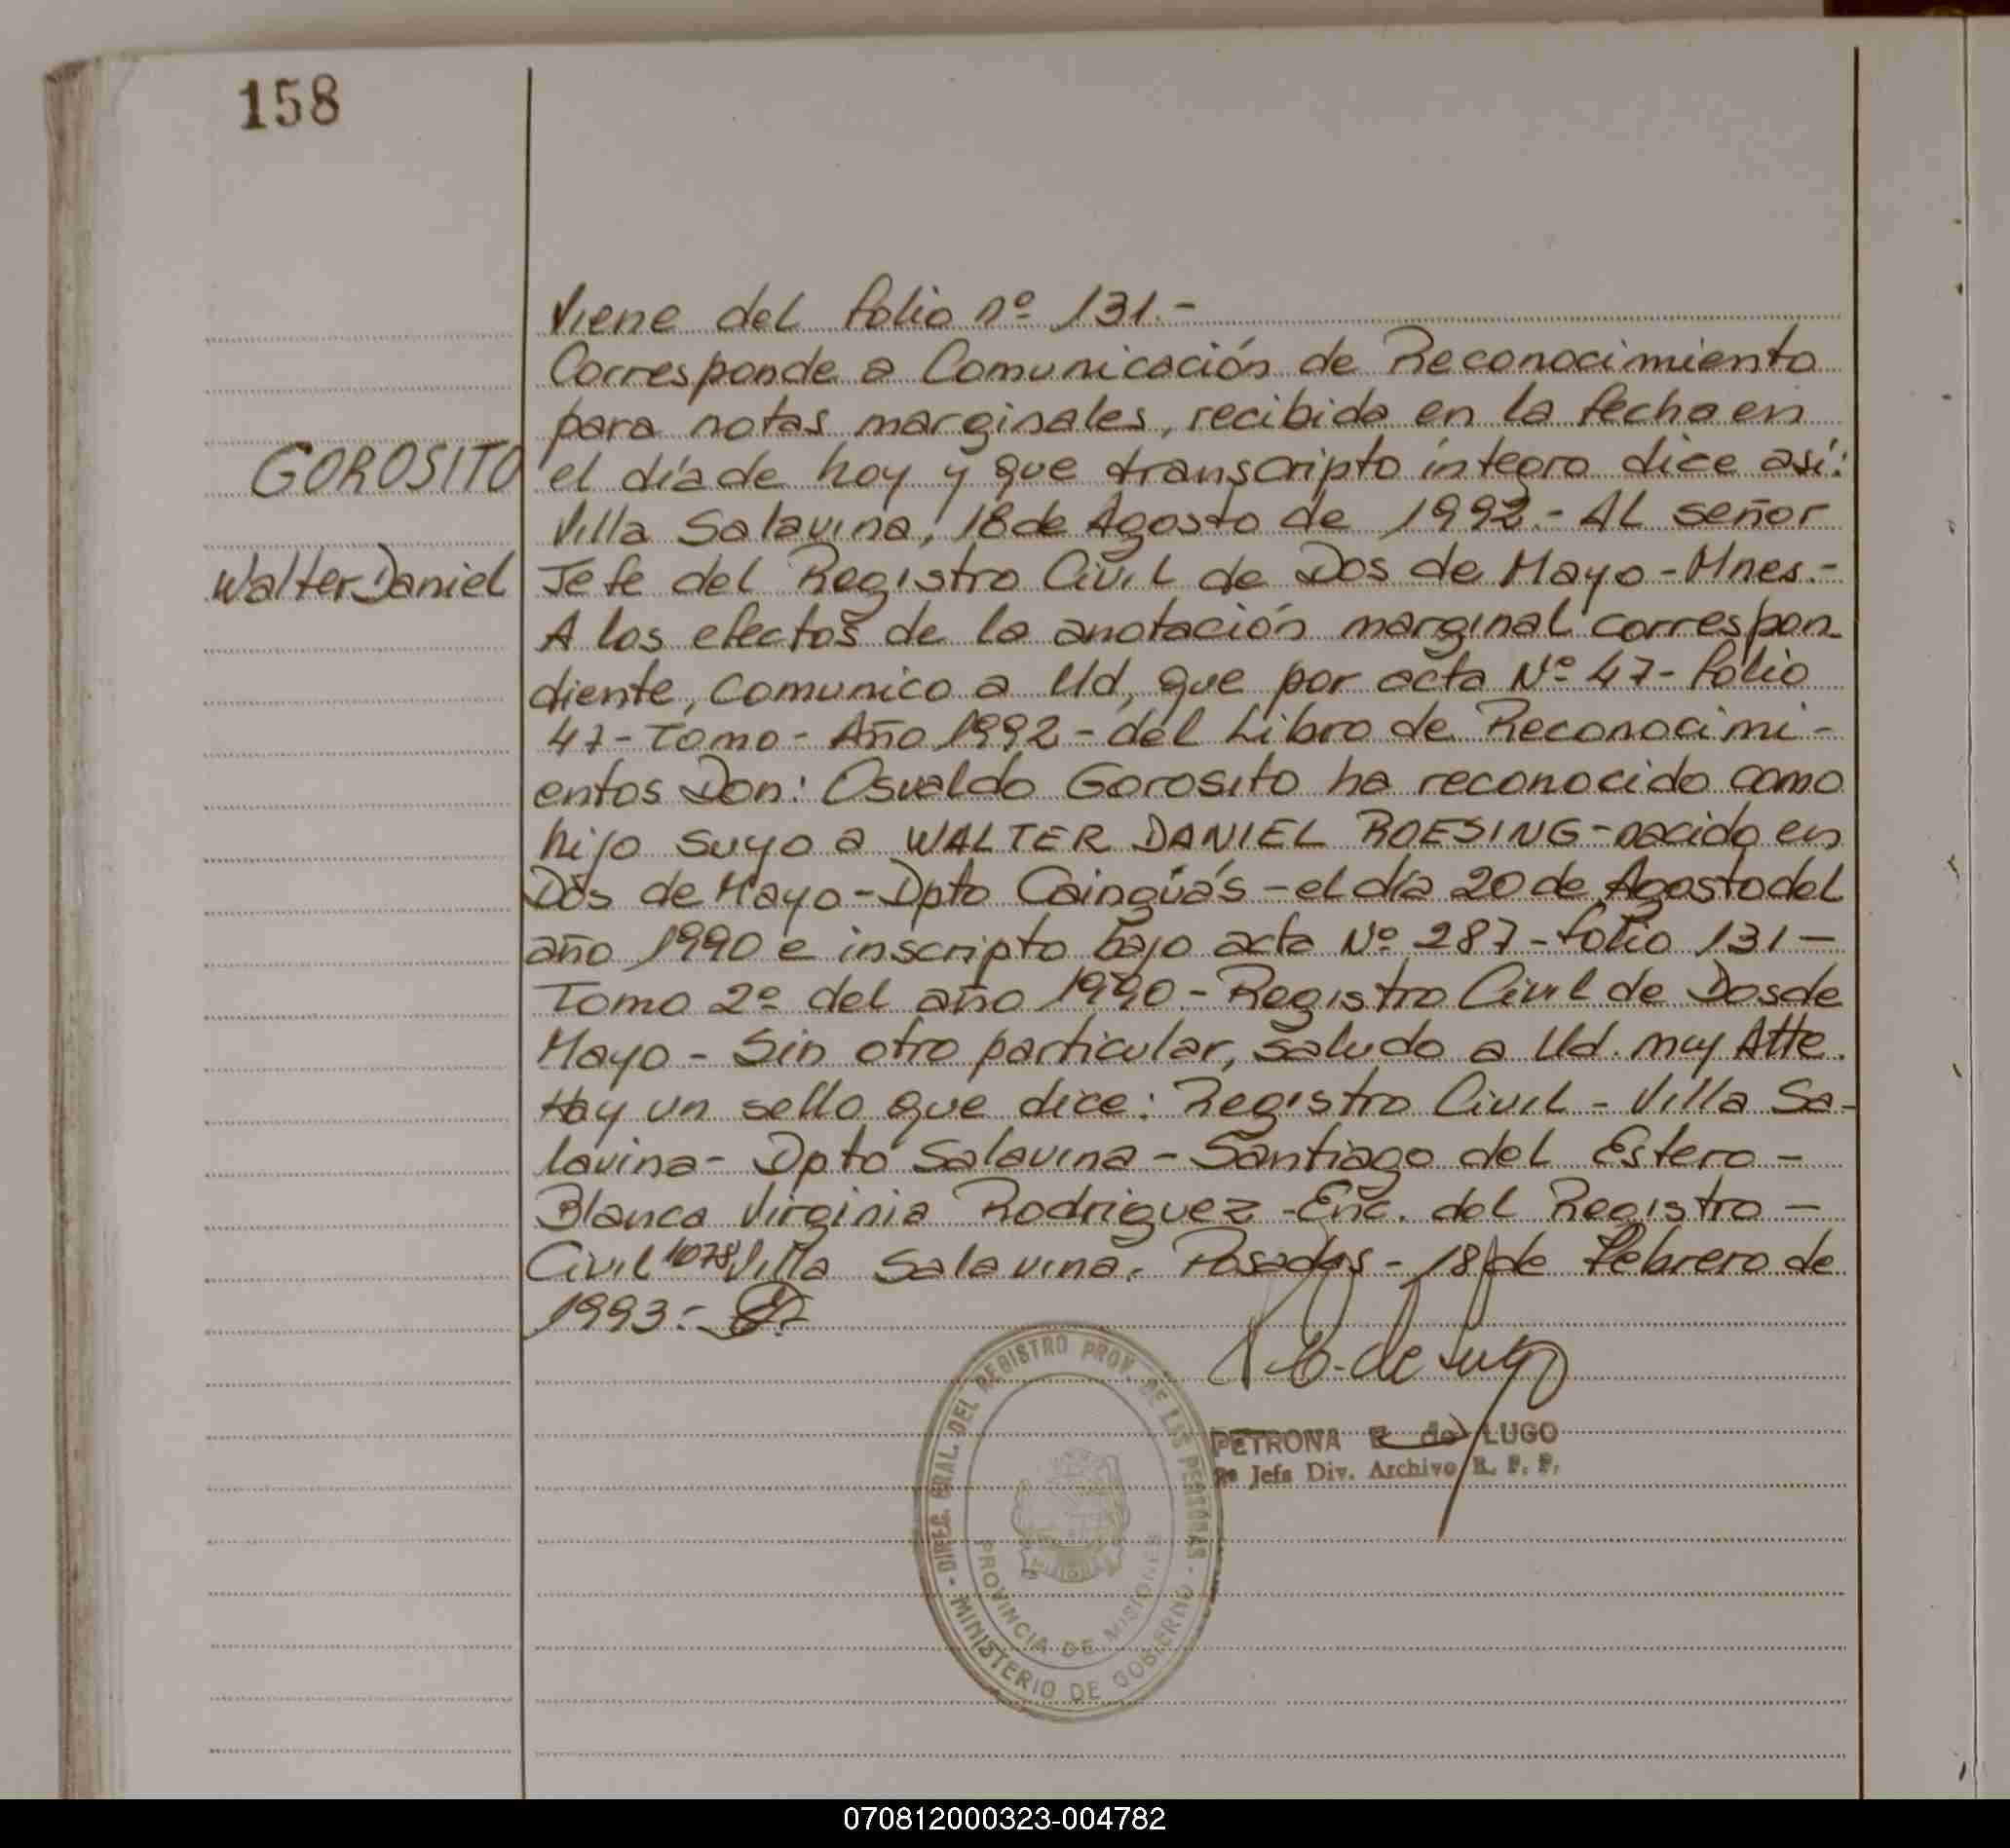 158
Viene del folio nº 131.-
Corresponde a Comunicación de Reconocimiento
para notas marginales, recibida en la fecha en
GOROSITO
el día de hoy y que transcripto íntegro dice así:
Villa Salavina, 18 de Agosto de 1992.- AL señor
Walter Daniel
Jefe del Registro Civil de Dos de Mayo - Mnes.-
A los efectos de la anotación marginal correspon-
diente, comunico a Ud, que por acta Nº 47 - folio
47 - Tomo - Año 1992 - del Libro de Reconocimi-
entos Don: Osvaldo Gorosito ha reconocido como
hijo suyo a WALTER DANIEL ROESING - nacido en
Dos de Mayo - Dpto Cainguás - el día 20 de Agosto del
año 1990 e inscripto bajo acta Nº 287 - folio 131 -
Tomo 2º del año 1990 - Registro Civil de Dos de
Mayo - Sin otro particular, saludo a Ud. muy Atte.
Hay un sello que dice: Registro Civil - Villa Sa-
lavina - Dpto Salavina - Santiago del Estero -
Blanca Virginia Rodriguez - Enc. del Registro -
Civil 1078 Villa Salavina. Posadas - 18 de Febrero de
1993.-
de Lugo
PETRONA R de LUGO
2º Jefa Div. Archivo R. P. P.
DIREC. GRAL. DEL REGISTRO PROV. DE LAS PERSONAS
PROVINCIA DE MISIONES
MINISTERIO DE GOBIERNO
070812000323-004782